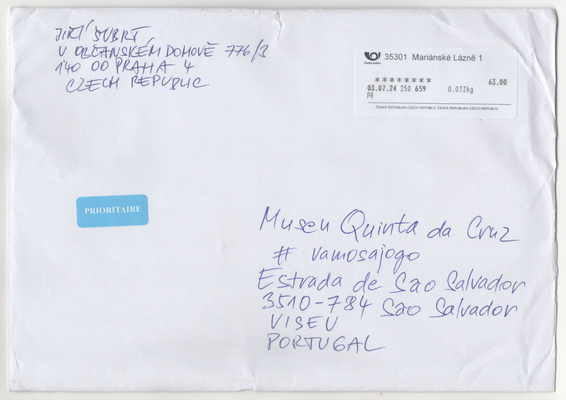 JIŘÍ ŠUBRT
V OBČANSKÉM DOMOVĚ 776/3
140 00 PRAHA 4
CZECH REPUBLIC
35301 Mariánské Lázně 1
********
63.00
03.07.24 250 659
0.073kg
PR
ČESKÁ REPUBLIKA CZECH REPUBLIC ČESKÁ REPUBLIKA CZECH REPUBLIC
PRIORITAIRE
Museu Quinta da Cruz
# vamosajogo
Estrada de Sao Salvador
3510-784 Sao Salvador
VISEU
PORTUGAL